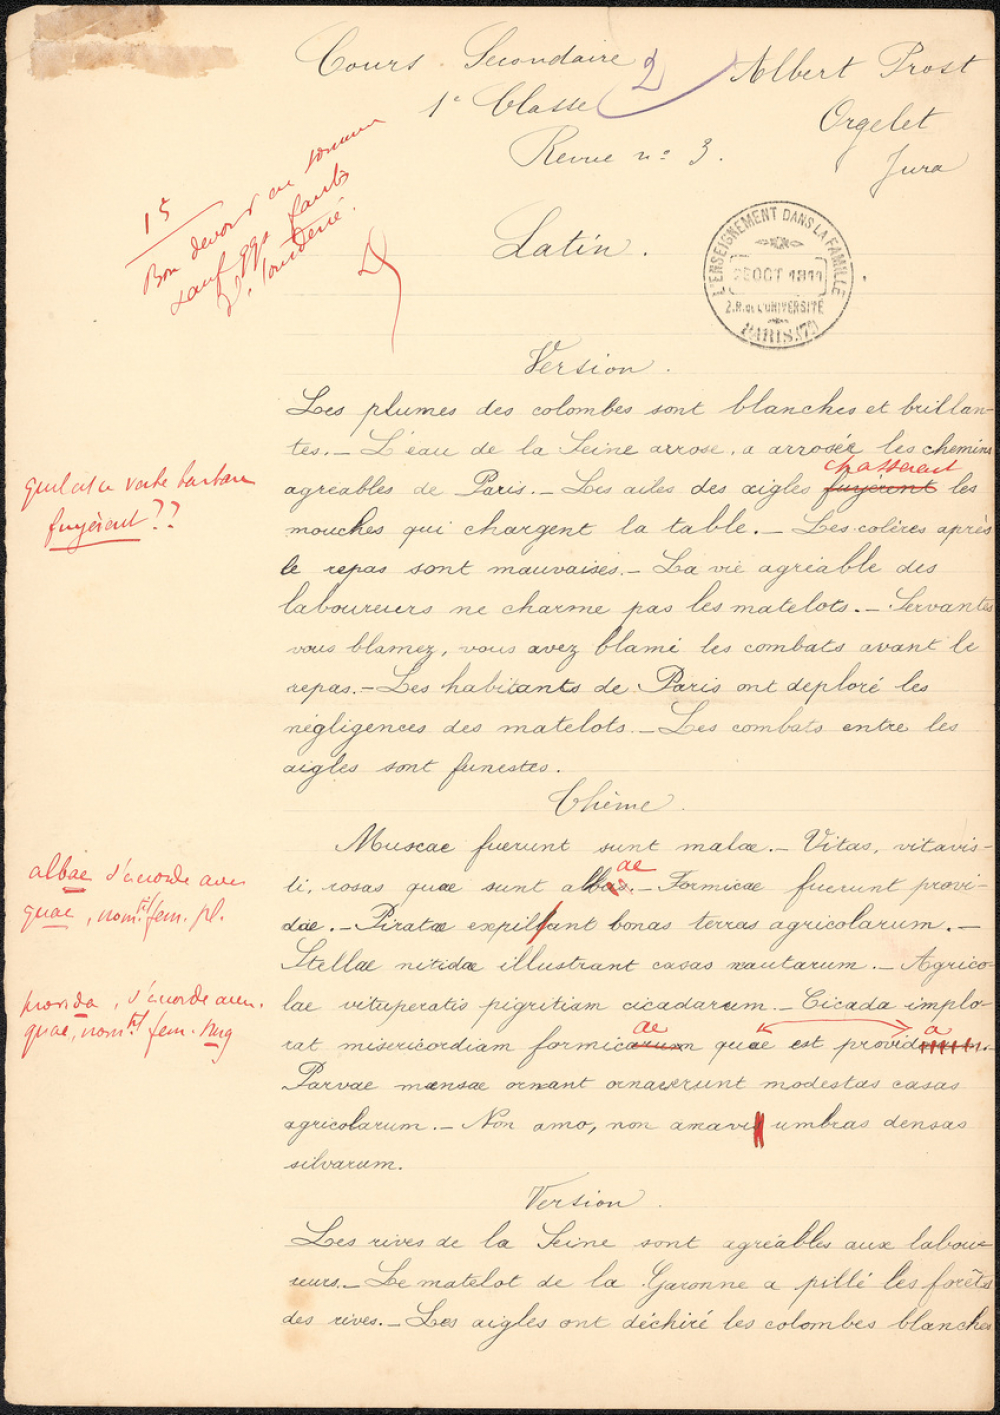 Cours Secondaire
2
Albert Prost
1e Classe
Orgelet
Revue no 3.
Jura
15
Bon devoir en somme
sauf qqs fautes
d'étourderie.
Latin.
L'ENSEIGNEMENT DANS LA FAMILLE
OCT 1911
2.R. DE L'UNIVERSITÉ
PARIS (7e)
Version.
Les plumes des colombes sont blanches et brillan-
tes. — L'eau de la Seine arrose, a arrosée les chemins
chasserent
agréables de Paris. — Les ailes des aigles fuyèrent les
mouches qui chargent la table. — Les colères après
le repas sont mauvaises. — La vie agréable des
laboureurs ne charme pas les matelots. — Servantes
vous blamez, vous avez blamé les combats avant le
repas. — Les habitants de Paris ont déploré les
négligences des matelots. — Les combats entre les
aigles sont funestes.
quel est ce verbe barbare
fuyèrent??
Thème.
Muscae fuerunt sunt malae. — Vitas, vitavis-
ae
ti, rosas quae sunt albas. — Formicae fuerunt provi-
dae. — Piratae expillant bonas terras agricolarum. —
Stellae nitidae illustrant casas nautarum. — Agrico-
lae vituperatis pigritiam cicadarum. — Cicada implo-
ae a
rat misericordiam formicarum quae est providarum. —
Parvae mensae ornant ornaverunt modestas casas
agricolarum. — Non amo, non amavi umbras densas
silvarum.
albae s'accorde avec
quae, nom.tif fem. pl.
provida, s'accorde avec
quae, nom.tif fem. sing
Version.
Les rives de la Seine sont agréables aux labou-
reurs. — Le matelot de la Garonne a pillé les forêts
des rives. — Les aigles ont déchiré les colombes blanches